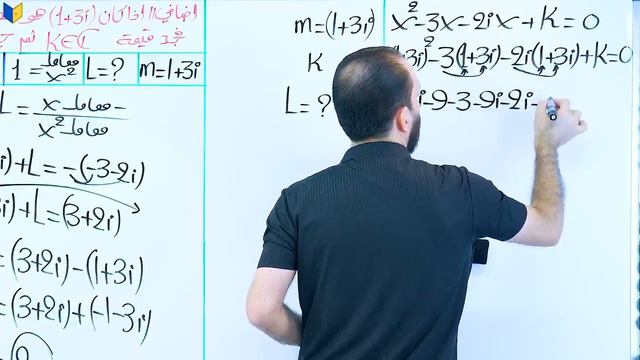 اضافي // اذا كان (1+3i) هو
قيمة K∈C ثم
1 = معامل x² L=? m=1+3i
L = - معامل x
معامل x²
i)+L=-(-3-2i)
i)+L=(3+2i)
=(3+2i)-(1+3i)
=(3+2i)+(-1-3i)
m=(1+3i) x²-3x-2ix+K=0
K 1+3i)²-3(1+3i)-2i(1+3i)+K=0
L=? i-9-3-9i-2i-